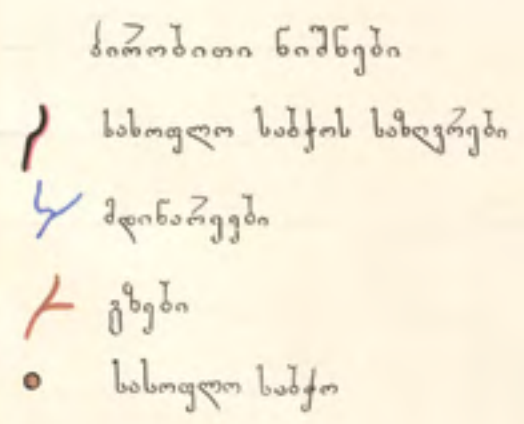 პირობითი ნიშნები
სასოფლო საბჭოს საზღვრები
მდინარეები
გზები
სასოფლო საბჭო